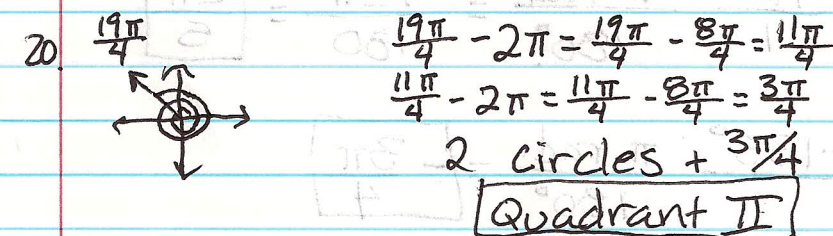 20. 19π/4 19π/4 - 2π = 19π/4 - 8π/4 = 11π/4
11π/4 - 2π = 11π/4 - 8π/4 = 3π/4
2 circles + 3π/4
Quadrant II